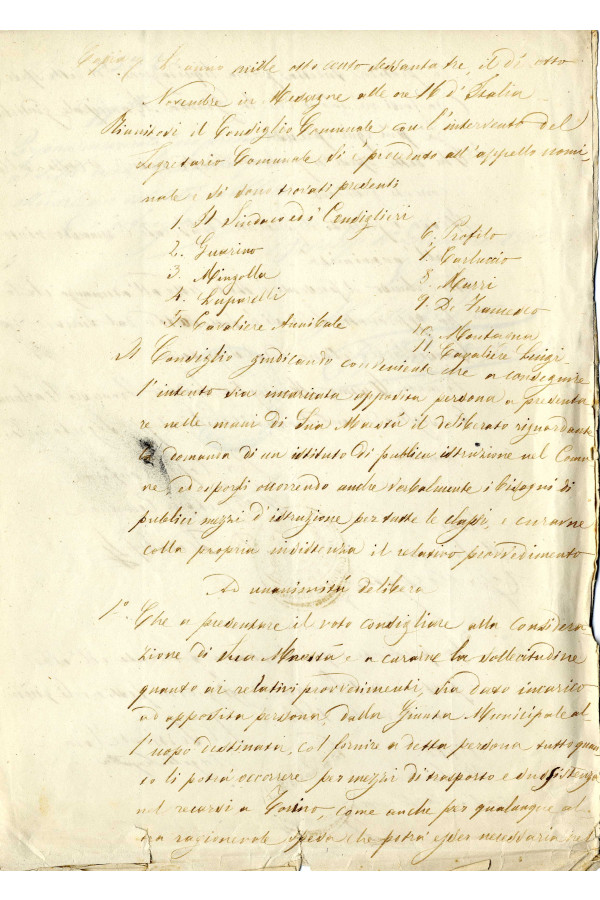 Copia L'anno mille otto cento sessanta tre, il dì otto
Novembre in Mesagne alle ore 16 d'Italia
Riunitosi il Consiglio Comunale con l'intervento del
Segretario Comunale si è proceduto all'appello nomi-
nale e si sono trovati presenti
1. Il Sindaco ed i Consiglieri
2. Guarino
3. Mingolla
4. Luparelli
5. Cavaliere Annibale
6. Profilo
7. Carluccio
8. Murri
9. De Francesco
10. Montagna
11. Cavaliere Luigi
Il Consiglio giudicando conveniente che a conseguire
l'intento sia incaricata apposita persona a presenta
re nelle mani di Sua Maestà il deliberato riguardante
la domanda di un istituto di publica istruzione nel Comu
ne, ed esporsi occorrendo anche verbalmente i bisogni di
publici mezzi d'istruzione per tutte le classi, e curarne
colla propria insistenza il relativo provvedimento
Ad unanimità delibera
1°. Che a presentare il voto consigliare alla considera
zione di sua Maestà e a curarne la sollecitudine
quanto ai relativi provvedimenti, sia dato incarico
ad apposita persona dalla Giunta Municipale al-
l'uopo destinata, col fornire a detta persona tutto quan
to li potrà occorrere per mezzi di trasporto e sussistenza
nel recarsi a Torino, come anche per qualunque al-
tra ragionevole spesa che potrà esser necessaria